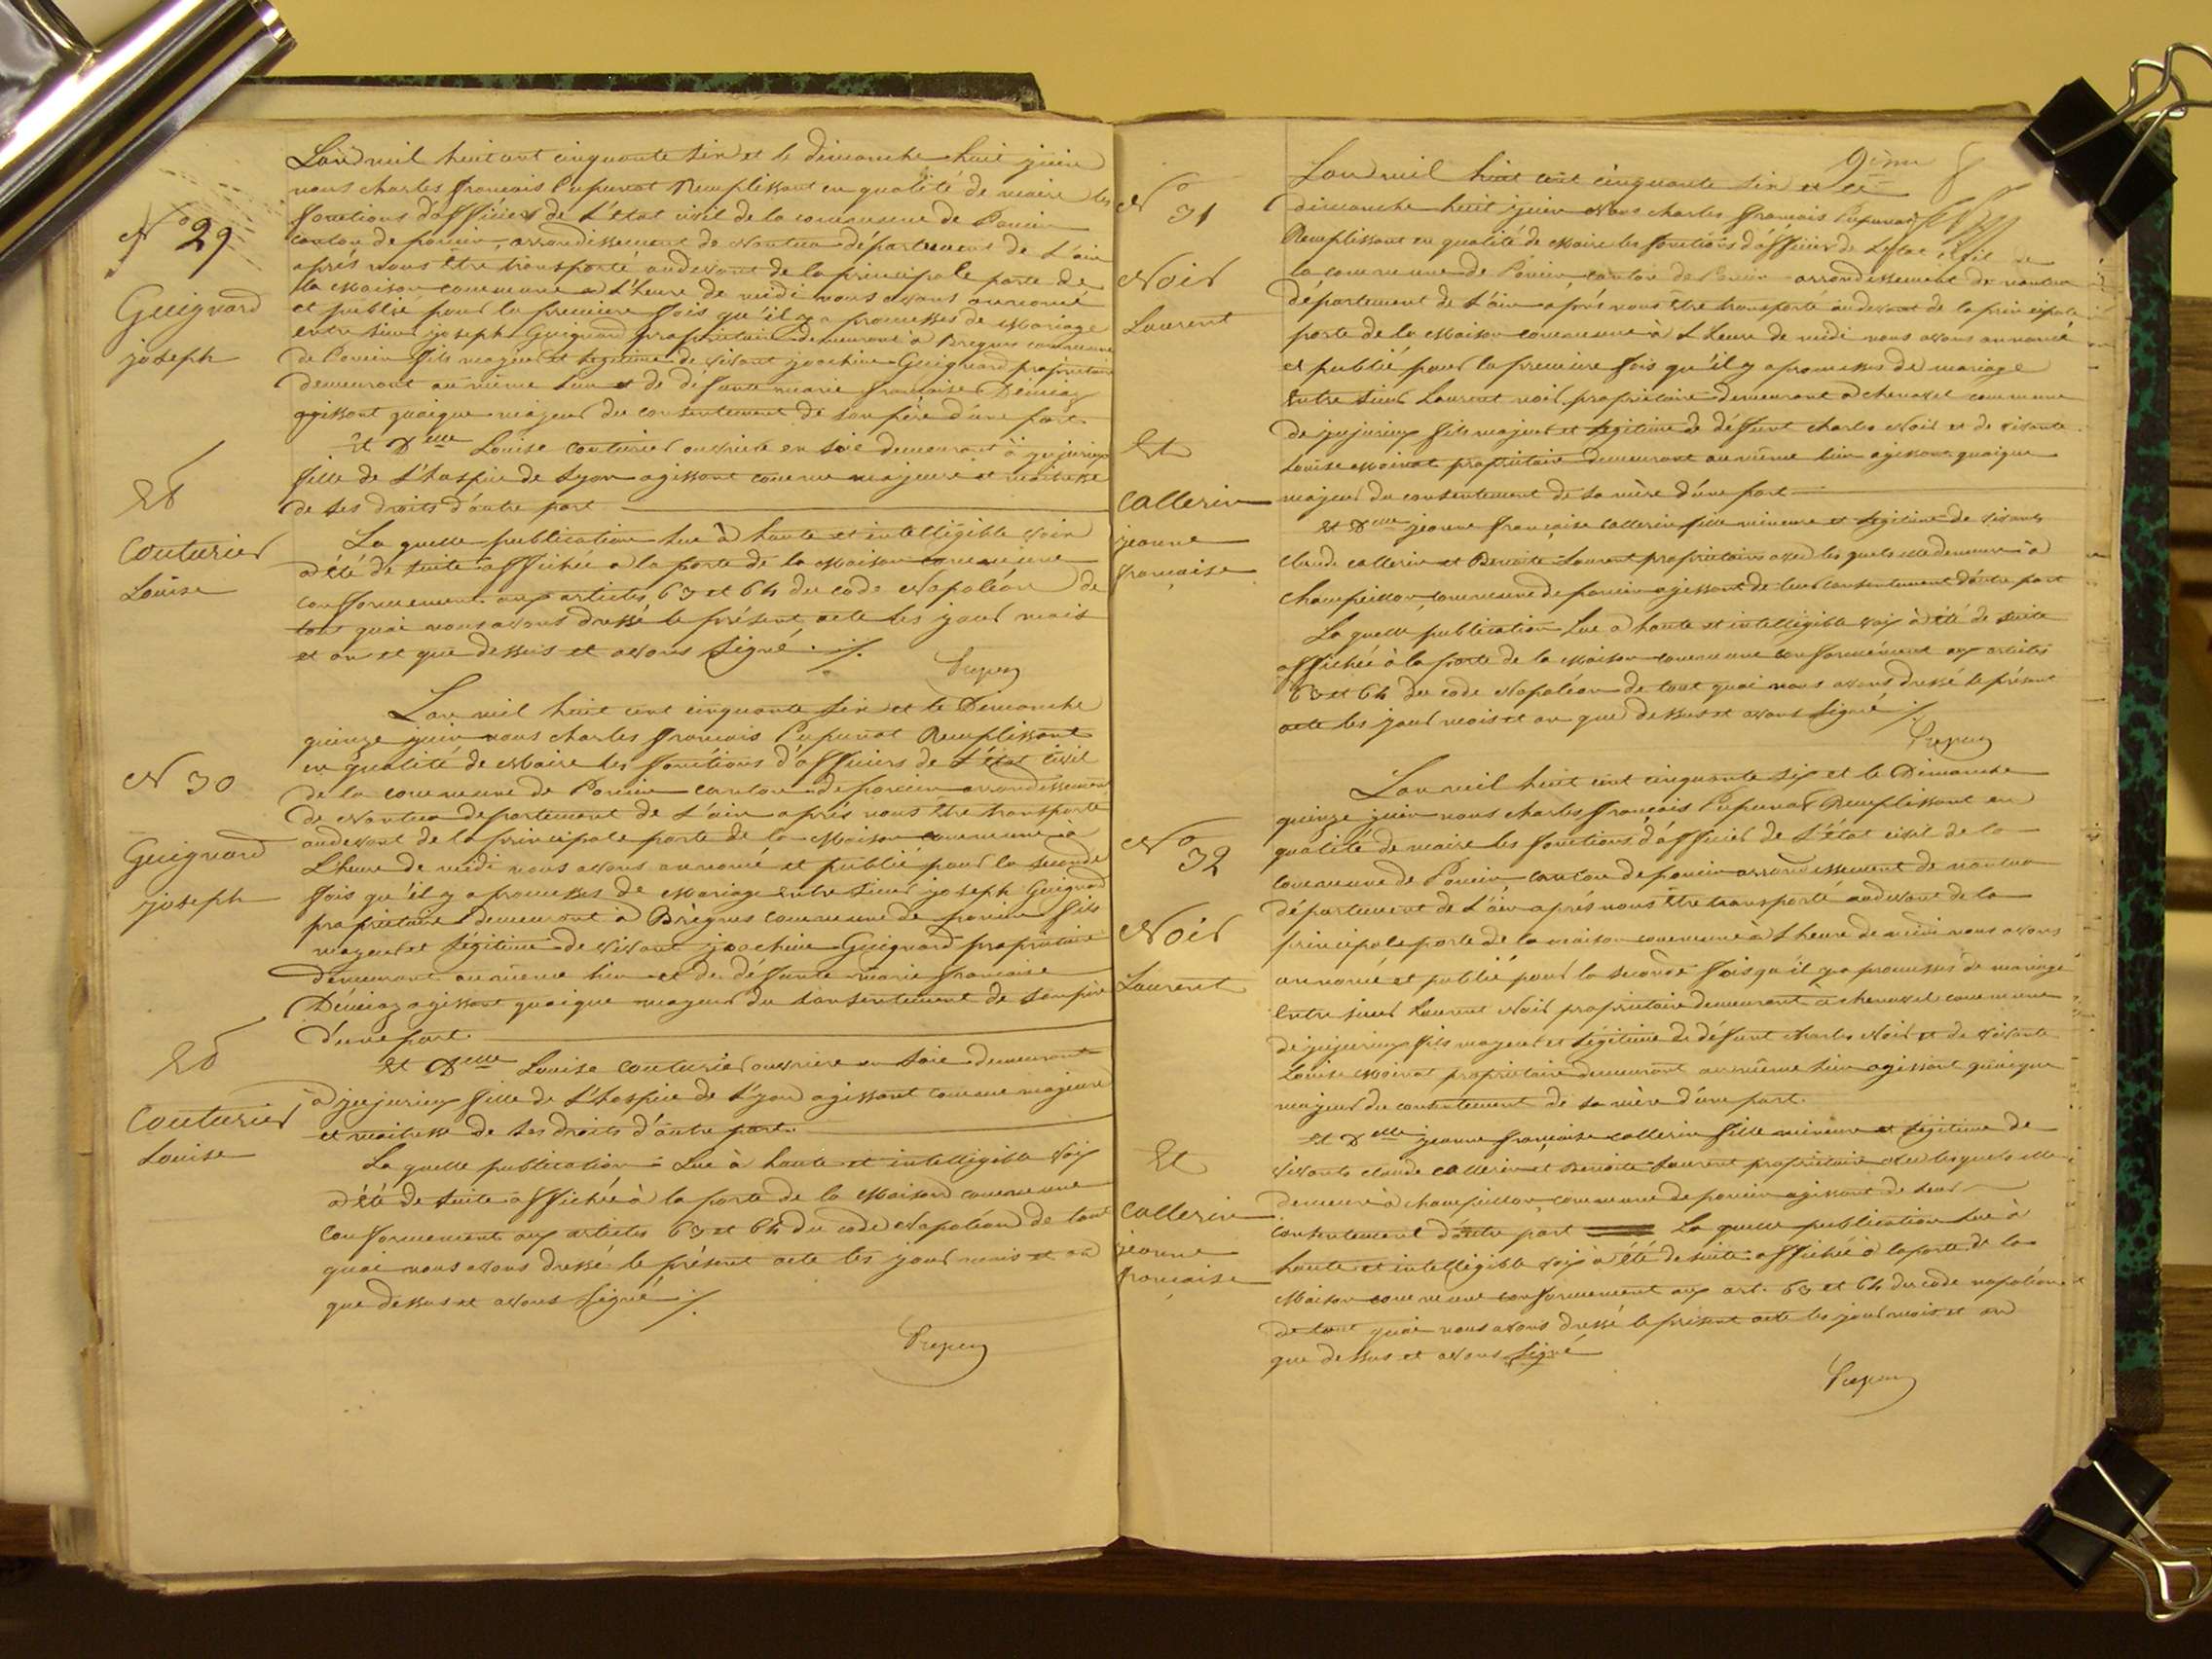 N° 29
Guignard
joseph
Et
Couturier
Louise
L'an mil huit cent cinquante six et le dimanche huit juin
nous charles francois Pupunat Remplissant en qualité de maire les
fonctions d'officiers de L'état civil de la commune de Poncin
canton de poncin, arrondissement de Nantua département de L'ain
après nous être transporté audevant de la principale porte de
la Maison commune à L'heure de midi nous avons annoncé
et publié pour la premiere fois qu'il y a promesses de Mariage
entre sieur joseph Guignard propriétaire demeurant à Bregnes commune
de Poncin fils majeur et légitime de vivant joachim Guignard propriétaire
demeurant au même lieu et de défunte marie francoise Démiaz
agissant quoique majeur du consentement de son père d'une part
Et Delle Louise Couturier ouvrière en soie demeurant à jujurieux
fille de L'hospice de Lyon agissant comme majeure et maitresse
de ses droits d'autre part
La quelle publication lue à haute et intelligible voix
a été de suite affichée a la porte de la Maison commune
conformement aux articles 63 et 64 du code Napoléon de
tout quoi nous avons dressé le présent acte les jour mois
et an et que dessus et avons signé ./.
N 30
Guignard
joseph
Et
Couturier
Louise
L'an mil huit cent cinquante six et le Dimanche
quinze juin nous charles francois Pupunat Remplissant
en qualité de Maire les fonctions d'officiers de L'état civil
de la commune de Poncin canton de poncin arrondissement
de Nantua departement de L'ain après nous être transporté
audevant de la principale porte de la Maison commune à
L'heure de midi nous avons annoncé et publié pour la seconde
fois qu'il y a promesses de Mariage entre sieur joseph Guignard
propriétaire demeurant à Brègnes commune de poncin fils
majeur et légitime de vivant joachim Guignard propriétaire
demeurant au même lieu et de défunte marie francoise
Démiaz agissant quoique majeur du consentement de son père
d'une part
Et Delle Louise Couturier ouvrière en soie demeurant
à jujurieux fille de L'hospice de Lyon agissant comme majeure
et maitresse de ses droits d'autre part.
La quelle publication Lue à haute et intelligible voix
a été de suite affichée à la porte de la Maison commune
conformement aux articles 63 et 64 du code Napoléon de tout
quoi nous avons dressé le présent acte les jour mois et an
que dessus et avons signé ./.
9ème
N° 31
Noir
Laurent
Et
Callerin
jeanne
française
L'an mil huit cent cinquante six et le
dimanche huit juin Nous charles francois Pupunat
Remplissant en qualité de Maire les fonctions d'officier de L'état civil de
la commune de Poncin canton de Poncin arrondissement de nantua
département de L'ain après nous être transporté audevant de la principale
porte de la Maison commune à L'heure de midi nous avons annoncé
et publié pour la premiere fois qu'il y a promesses de mariage
Entre sieur Laurent noir propriétaire demeurant à chenavel commune
de jujurieux fils majeur et légitime de défunt charles Noir et de vivante
Louise Moinat propriétaire demeurant au même lieu agissant quoique
majeur du consentement de sa mère d'une part
Et Delle jeanne française Callerin fille mineure et légitime de vivants
claude callerin et Benoite Laurent propriétaires avec les quels elle demeure à
Champeillon, commune de poncin agissant de leur consentement d'autre part
La quelle publication Lue a haute et intelligible voix à été de suite
affichée à la porte de la Maison commune conformément aux articles
63 et 64 du code Napoléon de tout quoi nous avons dressé le présent
acte les jour mois et an que dessus et avons signé ./.
N° 32
Noir
Laurent
Et
Callerin
jeanne
francaise
L'an mil huit cent cinquante six et le Dimanche
quinze juin nous charles françois Pupunat Remplissant en
qualité de maire les fonctions d'officier de L'état civil de la
commune de Poncin canton de poncin arrondissement de nantua
département de L'ain après nous être transporté audevant de la
principale porte de la maison commune à L'heure de midi nous avons
annoncé et publié pour la seconde fois qu'il y a promesses de mariage
Entre sieur Laurent Noir propriétaire demeurant à chenavel commune
de jujurieux fils majeur et légitime de défunt charles Noir et de vivante
Louise Moinat propriétaire demeurant au même lieu agissant quoique
majeur du consentement de sa mère d'une part.
Et Delle jeanne française callerin fille mineure et légitime de
vivants claude callerin et Benoite Laurent propriétaires avec lesquels elle
demeure à champeillon, commune de poncin agissant de leur
consentement d'autre part La quelle publication Lue à
haute et intelligible voix à été de suite affichée à la porte de la
Maison commune conformement aux art. 63 et 64 du code napoléon et
de tout quoi nous avons dressé le présent acte les jour mois et an
que dessus et avons signé